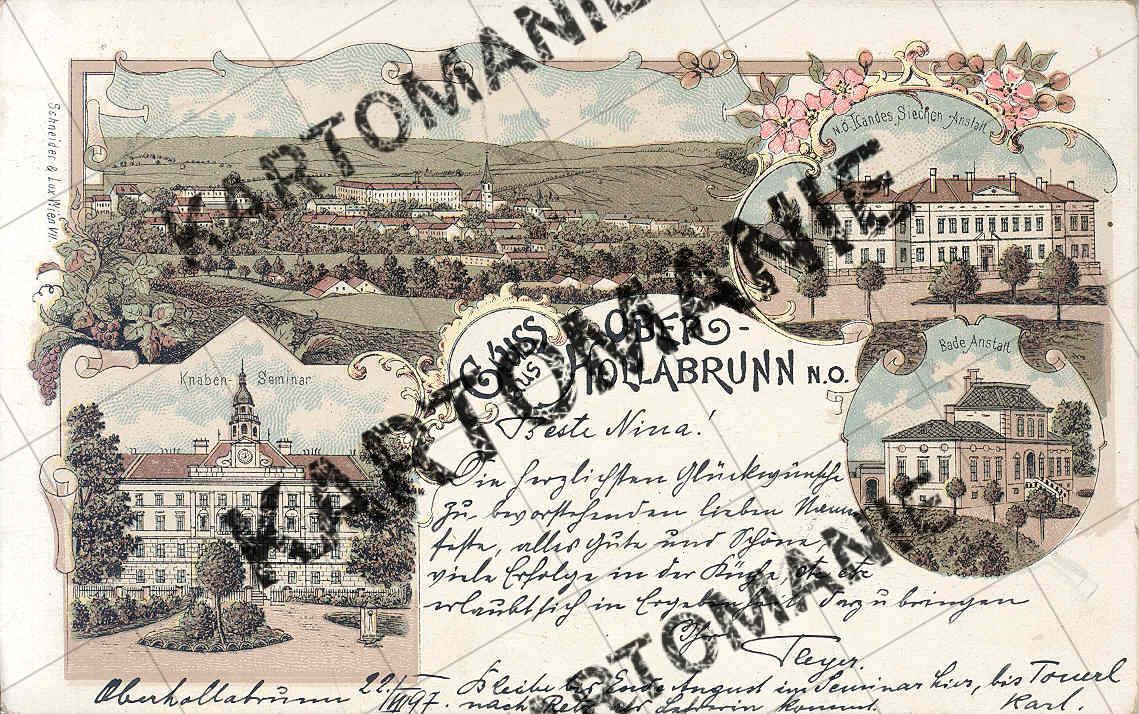 Schneider & Lux, Wien VII.
KARTOMANIE
KARTOMANIE
KARTOMANIE
KARTOMANIE
N.Ö. Landes Siechen-Anstalt
Bade Anstalt
Knaben-Seminar
Gruss aus
OBER-
HOLLABRUNN N.Ö.
Beste Nina!
Die herzlichsten Glückwünsche
zu bevorstehenden lieben
feste, alles Gute und Schöne,
viele Erfolge in der Küche etc etc
erlaubt sich in Ergebenheit darzubringen
Ihr
Oberhollabrunn 22./VII 97.
Bleibe bis Ende August im Seminar hier, bis Tonerl
nach Retz als Lehrerin kommt. Karl.